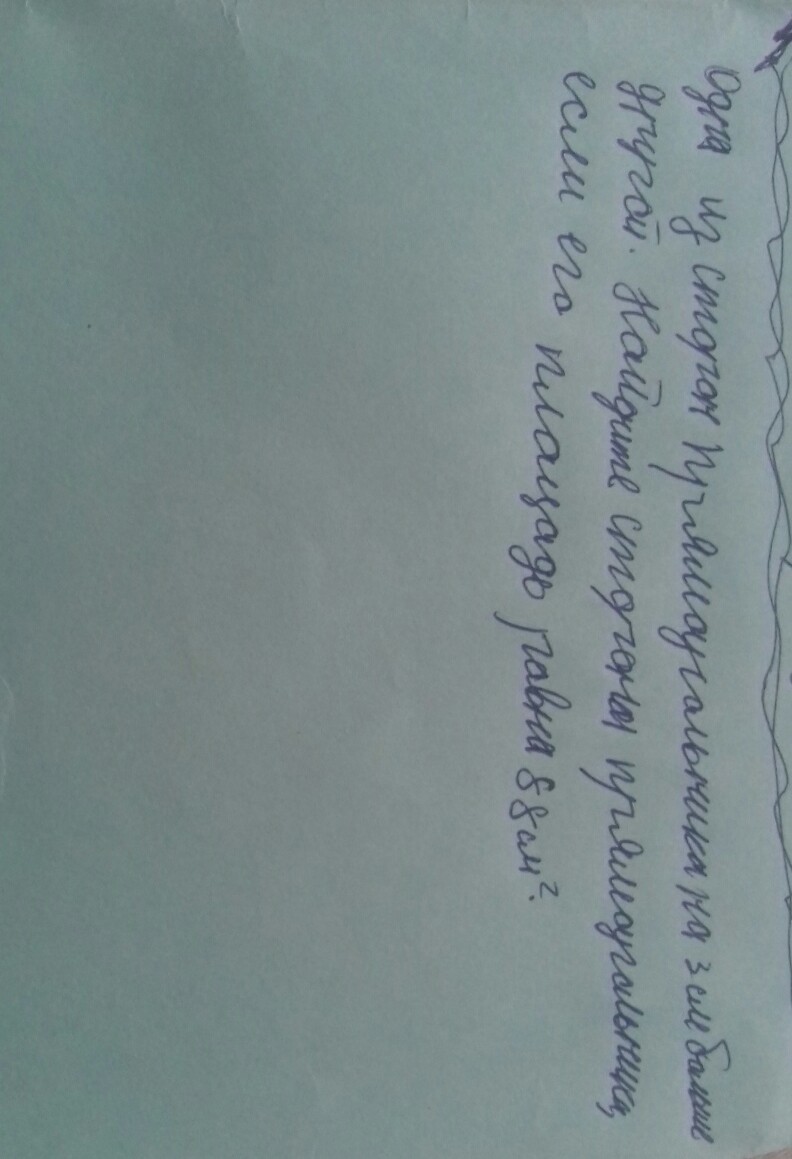 Одна из сторон прямоугольника на 3 см больше
другой. Найдите стороны прямоугольника,
если его площадь равна 88 см².